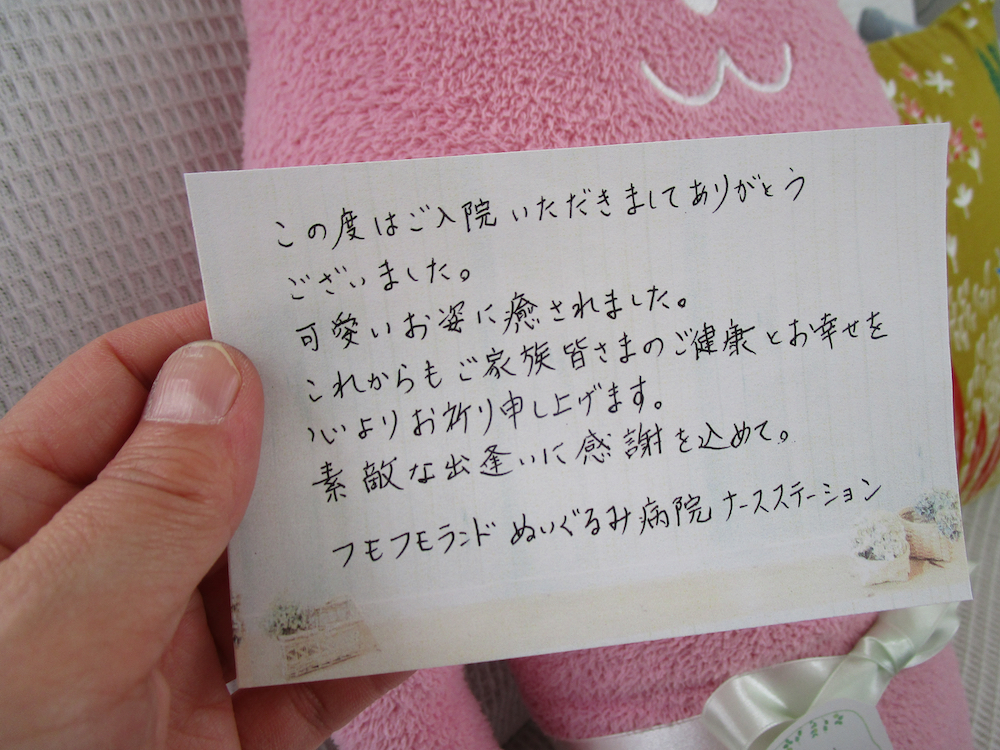 この度はご入院いただきましてありがとう
ございました。
可愛いお姿に癒されました。
これからもご家族皆さまのご健康とお幸せを
心よりお祈り申し上げます。
素敵な出逢いに感謝を込めて。
フモフモランド ぬいぐるみ病院 ナースステーション